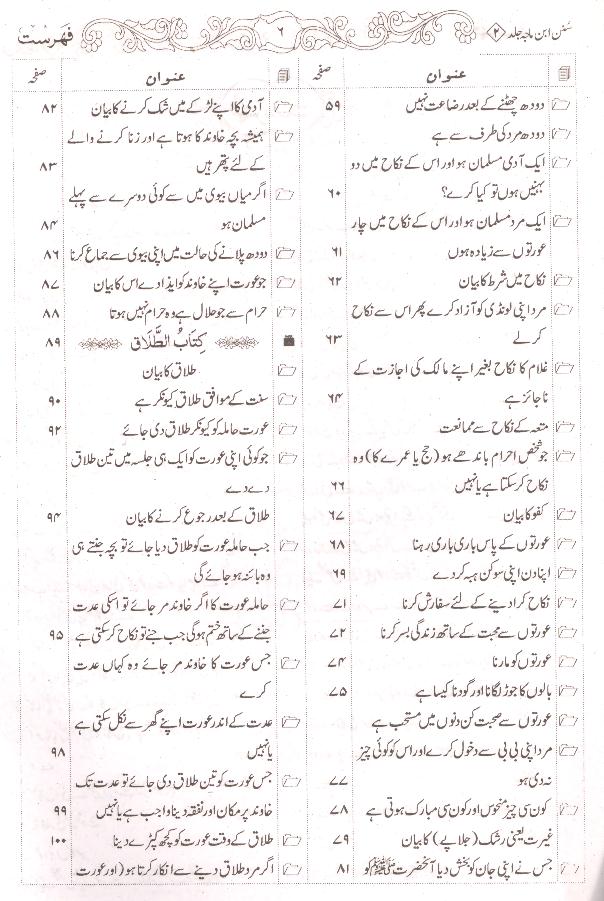 سُنن ابن ماجہ جلد ۲
۶
فہرست
عنوان
صفحہ
دودھ چھٹنے کے بعد رضاعت نہیں
۵۹
دودھ مرد کی طرف سے ہے
ایک آدمی مسلمان ہو اور اس کے نکاح میں دو
بہنیں ہوں تو کیا کرے؟
۶۰
ایک مرد مسلمان ہو اور اس کے نکاح میں چار
عورتوں سے زیادہ ہوں
۶۱
نکاح میں شرط کا بیان
۶۲
مرد اپنی لونڈی کو آزاد کرے پھر اس سے نکاح
کرلے
۶۳
غلام کا نکاح بغیر اپنے مالک کی اجازت کے
ناجائز ہے
۶۴
متعہ کے نکاح سے ممانعت
جو شخص احرام باندھے ہو (حج یا عمرے کا) وہ
نکاح کر سکتا ہے یا نہیں
۶۶
کفو کا بیان
۶۷
عورتوں کے پاس باری باری رہنا
۶۸
اپنا دن اپنی سوکن کو ہبہ کر دے
۶۹
نکاح کرا دینے کے لئے سفارش کرنا
۷۱
عورتوں سے محبت کے ساتھ زندگی بسر کرنا
۷۲
عورتوں کو مارنا
۷۴
بالوں کا جوڑ لگانا اور گودنا کیسا ہے
۷۵
عورتوں سے صحبت کن دنوں میں مستحب ہے
مرد اپنی بی بی سے دخول کرے اور اس کو کوئی چیز
نہ دی ہو
۷۷
کون سی چیز منحوس اور کون سی مبارک ہوتی ہے
۷۸
غیرت یعنی رشک (جلاپے) کا بیان
۷۹
جس نے اپنی جان کو بخش دیا آنحضرت ﷺ کو
۸۱
عنوان
صفحہ
آدمی کا اپنے لڑکے میں شک کرنے کا بیان
۸۲
ہمیشہ بچہ خاوند کا ہوتا ہے اور زنا کرنے والے
کے لئے پتھر ہیں
۸۳
اگر میاں بیوی میں سے کوئی دوسرے سے پہلے
مسلمان ہو
۸۴
دودھ پلانے کی حالت میں اپنی بیوی سے جماع کرنا
۸۶
جو عورت اپنے خاوند کو ایذا دے اس کا بیان
۸۷
حرام سے جو حلال ہے وہ حرام نہیں ہوتا
۸۸
کِتَابُ الطَّلَاق
۸۹
طلاق کا بیان
سنت کے موافق طلاق کیونکر ہے
۹۰
عورت حاملہ کو کیونکر طلاق دی جائے
۹۲
جو کوئی اپنی عورت کو ایک ہی جلسہ میں تین طلاق
دے دے
طلاق کے بعد رجوع کرنے کا بیان
۹۴
جب حاملہ عورت کو طلاق دیا جائے تو بچہ جنتے ہی
وہ بائنہ ہو جائے گی
حاملہ عورت کا اگر خاوند مر جائے تو اسکی عدت
جننے کے ساتھ ختم ہوگی جب جنے تو نکاح کر سکتی ہے
۹۵
جس عورت کا خاوند مر جائے وہ کہاں عدت
کرے
عدت کے اندر عورت اپنے گھر سے نکل سکتی ہے
یا نہیں
۹۸
جس عورت کو تین طلاق دی جائے تو عدت تک
خاوند پر مکان اور نفقہ دینا واجب ہے یا نہیں
۹۹
طلاق کے وقت عورت کو کچھ کپڑے دینا
۱۰۰
اگر مرد طلاق دینے سے انکار کرتا ہو (اور عورت